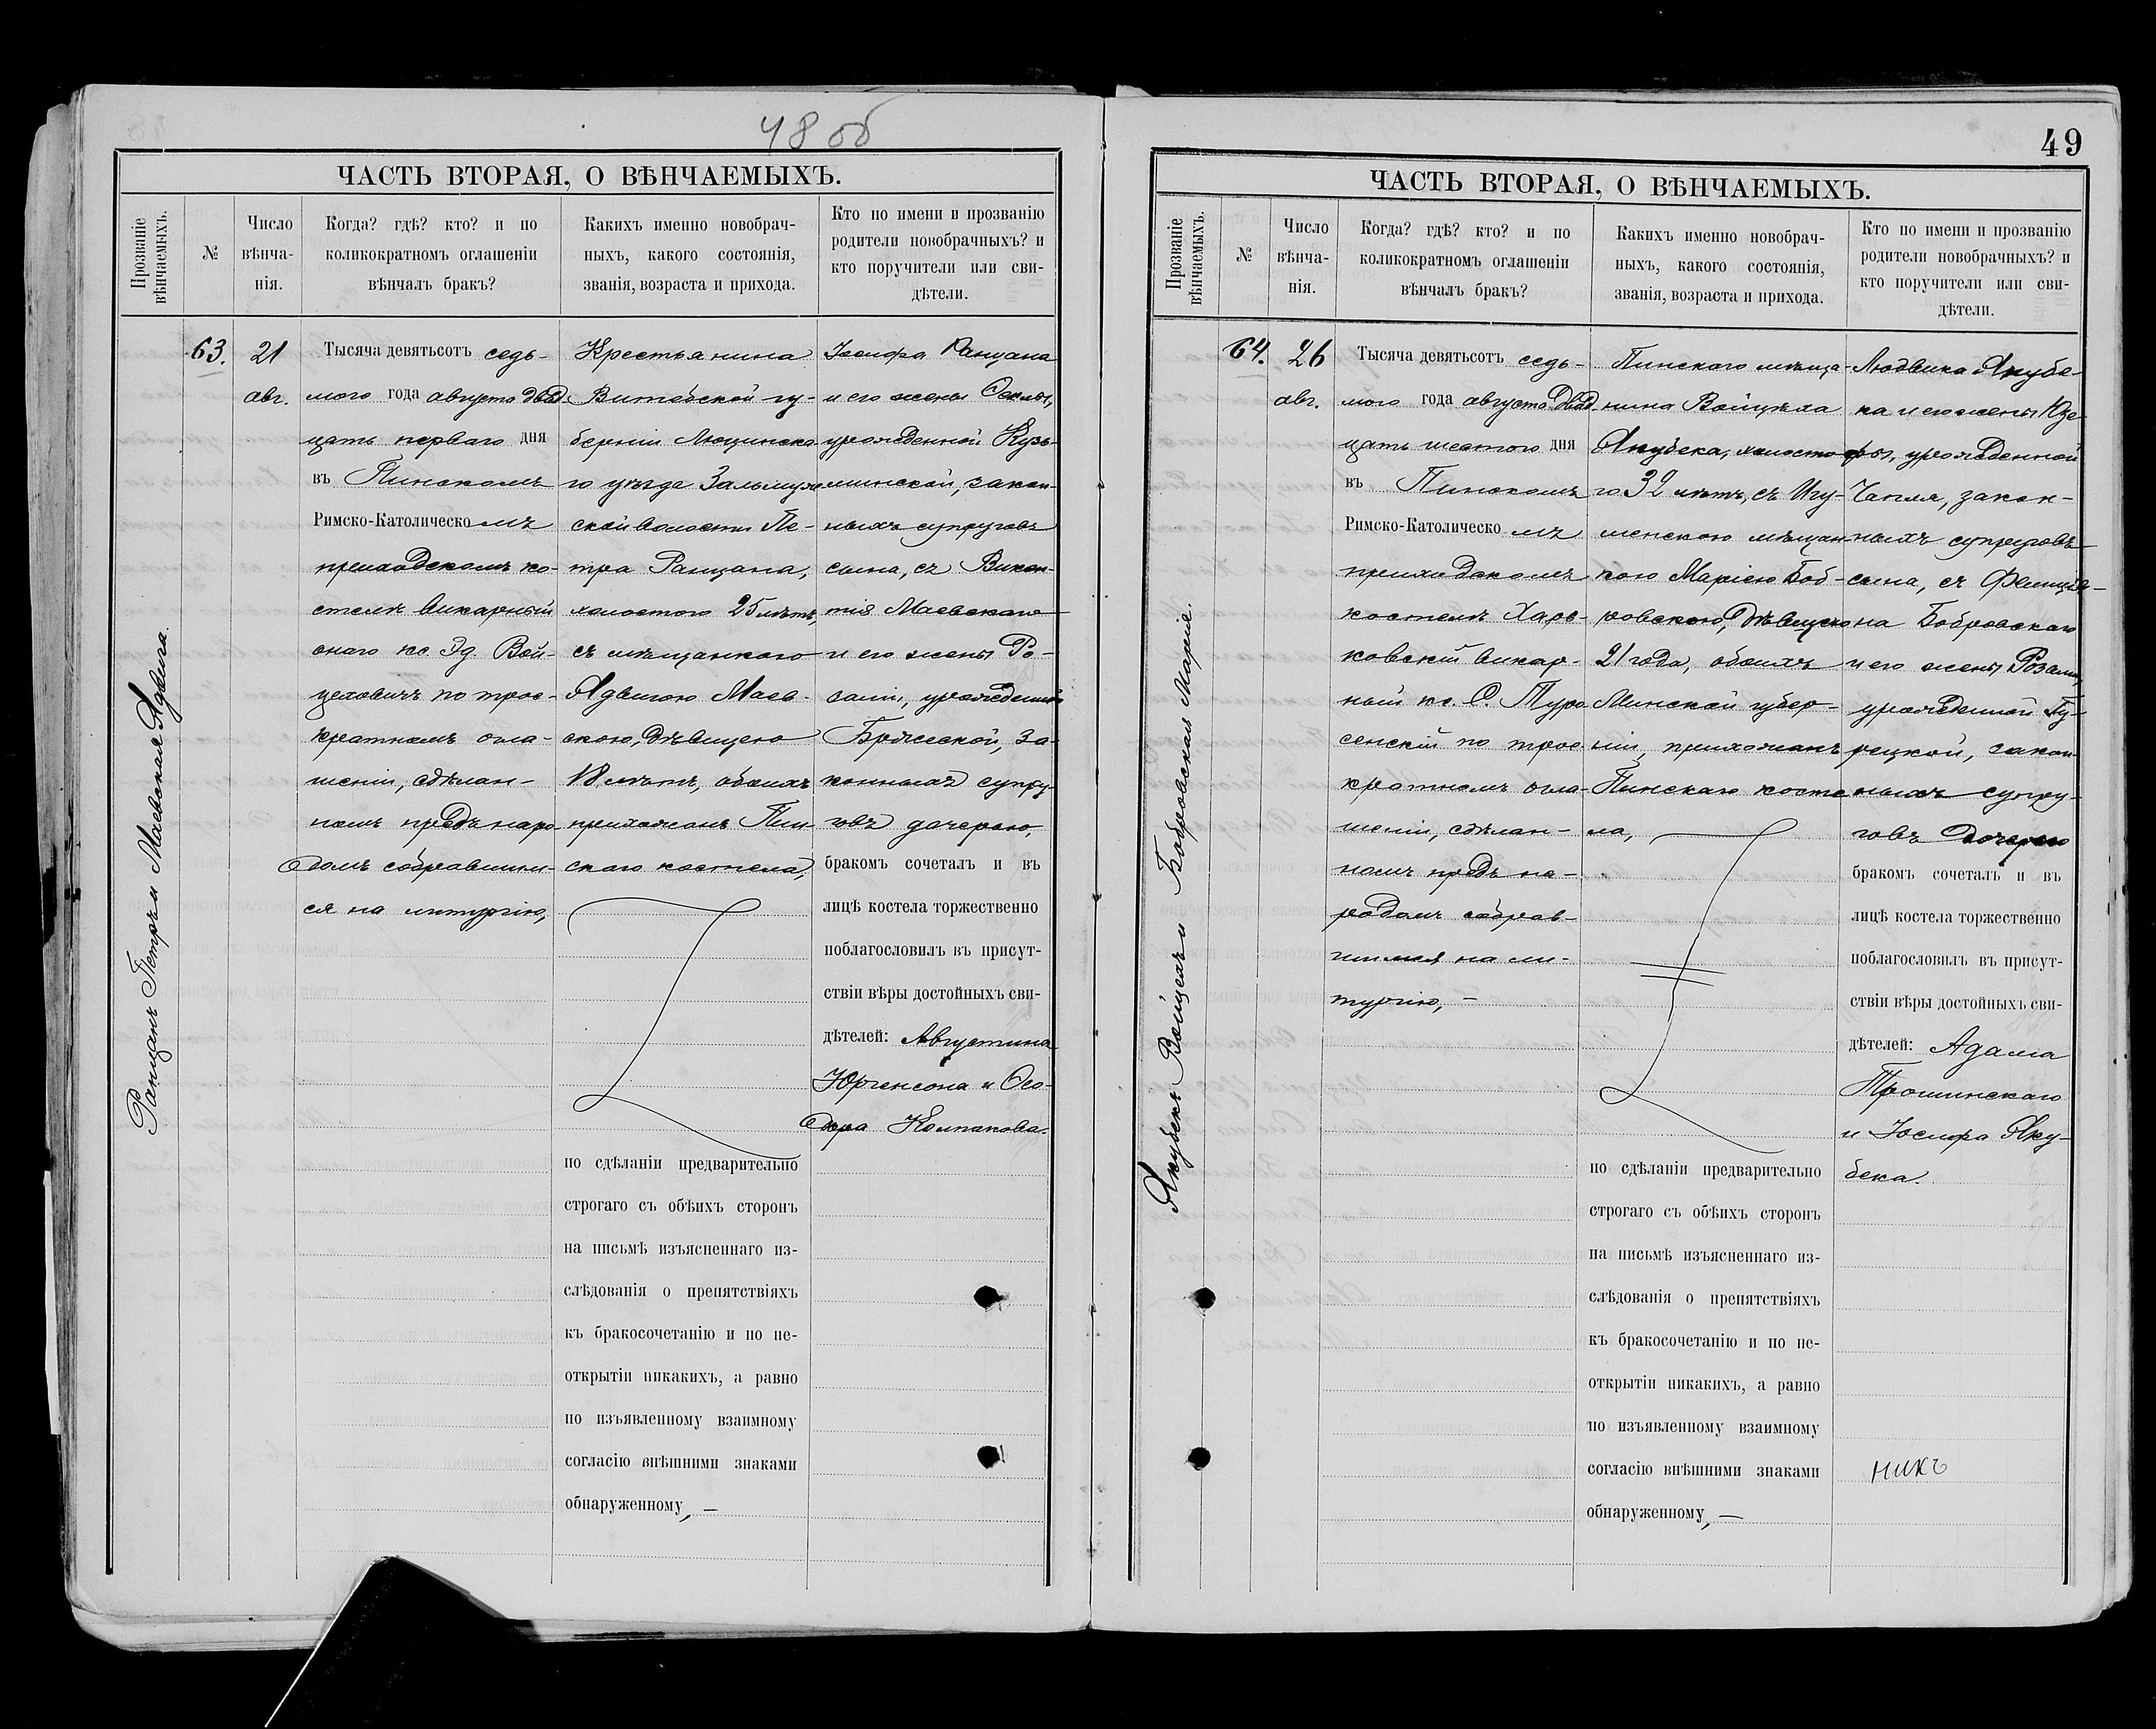 48 об
ЧАСТЬ ВТОРАЯ, О ВѢНЧАЕМЫХЪ.
Прозваніе
вѣнчаемыхъ.
№
Число
вѣнча-
нія.
Когда? гдѣ? кто? и по
коликократномъ оглашеніи
вѣнчалъ бракъ?
Какихъ именно новобрач-
ныхъ, какого состоянія,
званія, возраста и прихода.
Кто по имени и прозванію
родители новобрачныхъ? и
кто поручители или сви-
дѣтели.
Ранцанъ Петръ и Маевская Ядвига.
63.
21
авг.
Тысяча девятьсотъ седь-
мого года августа двад
цать перваго дня
въ Пинскомъ
Римско-Католическомъ
приходскомъ ко-
стелѣ викарный
онаго кс. Эд. Вой-
цеховичъ по трое-
кратномъ огла-
шеніи, сдѣлан-
номъ предъ наро-
домъ собравшим-
ся на литургію,
Крестьянина
Витебской гу-
берніи Люцинска-
го уѣзда
ской волости Пе-
тра Ранцана,
холостого 25 лѣтъ,
съ мѣщанкою
Ядвигою Маев-
скою, дѣвицею
18 лѣтъ, обоихъ
прихожанъ Пин-
скаго костела,
по сдѣланіи предварительно
строгаго съ обѣихъ сторонъ
на письмѣ изъясненнаго из-
слѣдованія о препятствіяхъ
къ бракосочетанію и по не-
открытіи никакихъ, а равно
по изъявленному взаимному
согласію внѣшними знаками
обнаруженному, —
Іосифа Ранцана
и его жены Ѳеклы,
урожденной Кузь-
минской, закон-
ныхъ супруговъ
сына, съ Викен-
тія Маевскаго
и его жены Ро-
заліи, урожденной
за-
конныхъ супру-
говъ дочерью,
бракомъ сочеталъ и въ
лицѣ костела торжественно
поблагословилъ въ присут-
ствіи вѣры достойныхъ сви-
дѣтелей: Августина
Юргенсона и Ѳео-
дора Колпакова.
49
ЧАСТЬ ВТОРАЯ, О ВѢНЧАЕМЫХЪ.
Прозваніе
вѣнчаемыхъ.
№
Число
вѣнча-
нія.
Когда? гдѣ? кто? и по
коликократномъ оглашеніи
вѣнчалъ бракъ?
Какихъ именно новобрач-
ныхъ, какого состоянія,
званія, возраста и прихода.
Кто по имени и прозванію
родители новобрачныхъ? и
кто поручители или сви-
дѣтели.
Якубекъ Войцехъ и Бобровская Марія.
64.
26
авг.
Тысяча девятьсотъ седь-
мого года августа двад
цать шестого дня
въ Пинскомъ
Римско-Католическомъ
приходскомъ
костелѣ Харь-
ковскій викар-
ный кс. О. Туро
сенскій по трое
кратномъ огла-
шеніи, сдѣлан-
номъ предъ на-
родомъ собрав-
шимся на ли-
тургію, —
Пинского мѣща-
нина Войцѣха
Якубека, холосто
го 32 лѣтъ, съ Игу-
менскою мѣщан-
кою Маріею Боб-
ровскою, дѣвицею
21 года, обоихъ
Минской губер-
ніи, прихожанъ
Пинскаго косте
ла,
по сдѣланіи предварительно
строгаго съ обѣихъ сторонъ
на письмѣ изъясненнаго из-
слѣдованія о препятствіяхъ
къ бракосочетанію и по не-
открытіи никакихъ, а равно
по изъявленному взаимному
согласію внѣшними знаками
обнаруженному, —
Людвика Якубе-
ка и его жены Юзе-
фы, урожденной
Чапля, закон-
ныхъ супруговъ
сына, съ Фелиціа-
на Бобровскаго
и его жены Розаліи,
урожденной Гу-
рецкой, закон-
ныхъ супру-
говъ дочерью
бракомъ сочеталъ и въ
лицѣ костела торжественно
поблагословилъ въ присут-
ствіи вѣры достойныхъ сви-
дѣтелей: Адама
Трошинскаго
и Іосифа Яку-
бека.
никъ